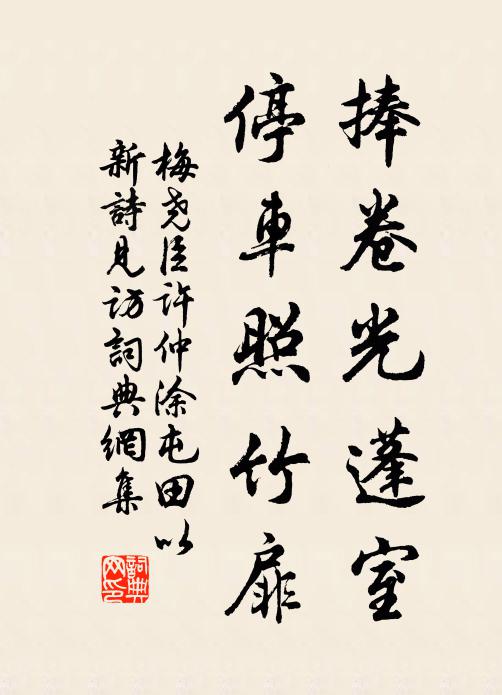 捧卷光蓬室
停車照竹扉
梅尧臣许仲涂屯田以
新詩見访詞典網集
詞典网印